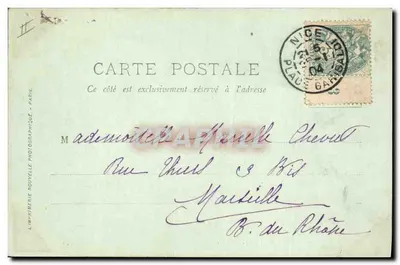 II
NICE
PLACE GARIBALDI
04
CARTE POSTALE
Ce côté est exclusivement réservé à l'adresse
Mademoiselle Chevret
Rue Thiers 3 Bis
Marseille
B. du Rhône
IMPRIMERIE NOUVELLE PHOTOGRAPHIQUE - PARIS